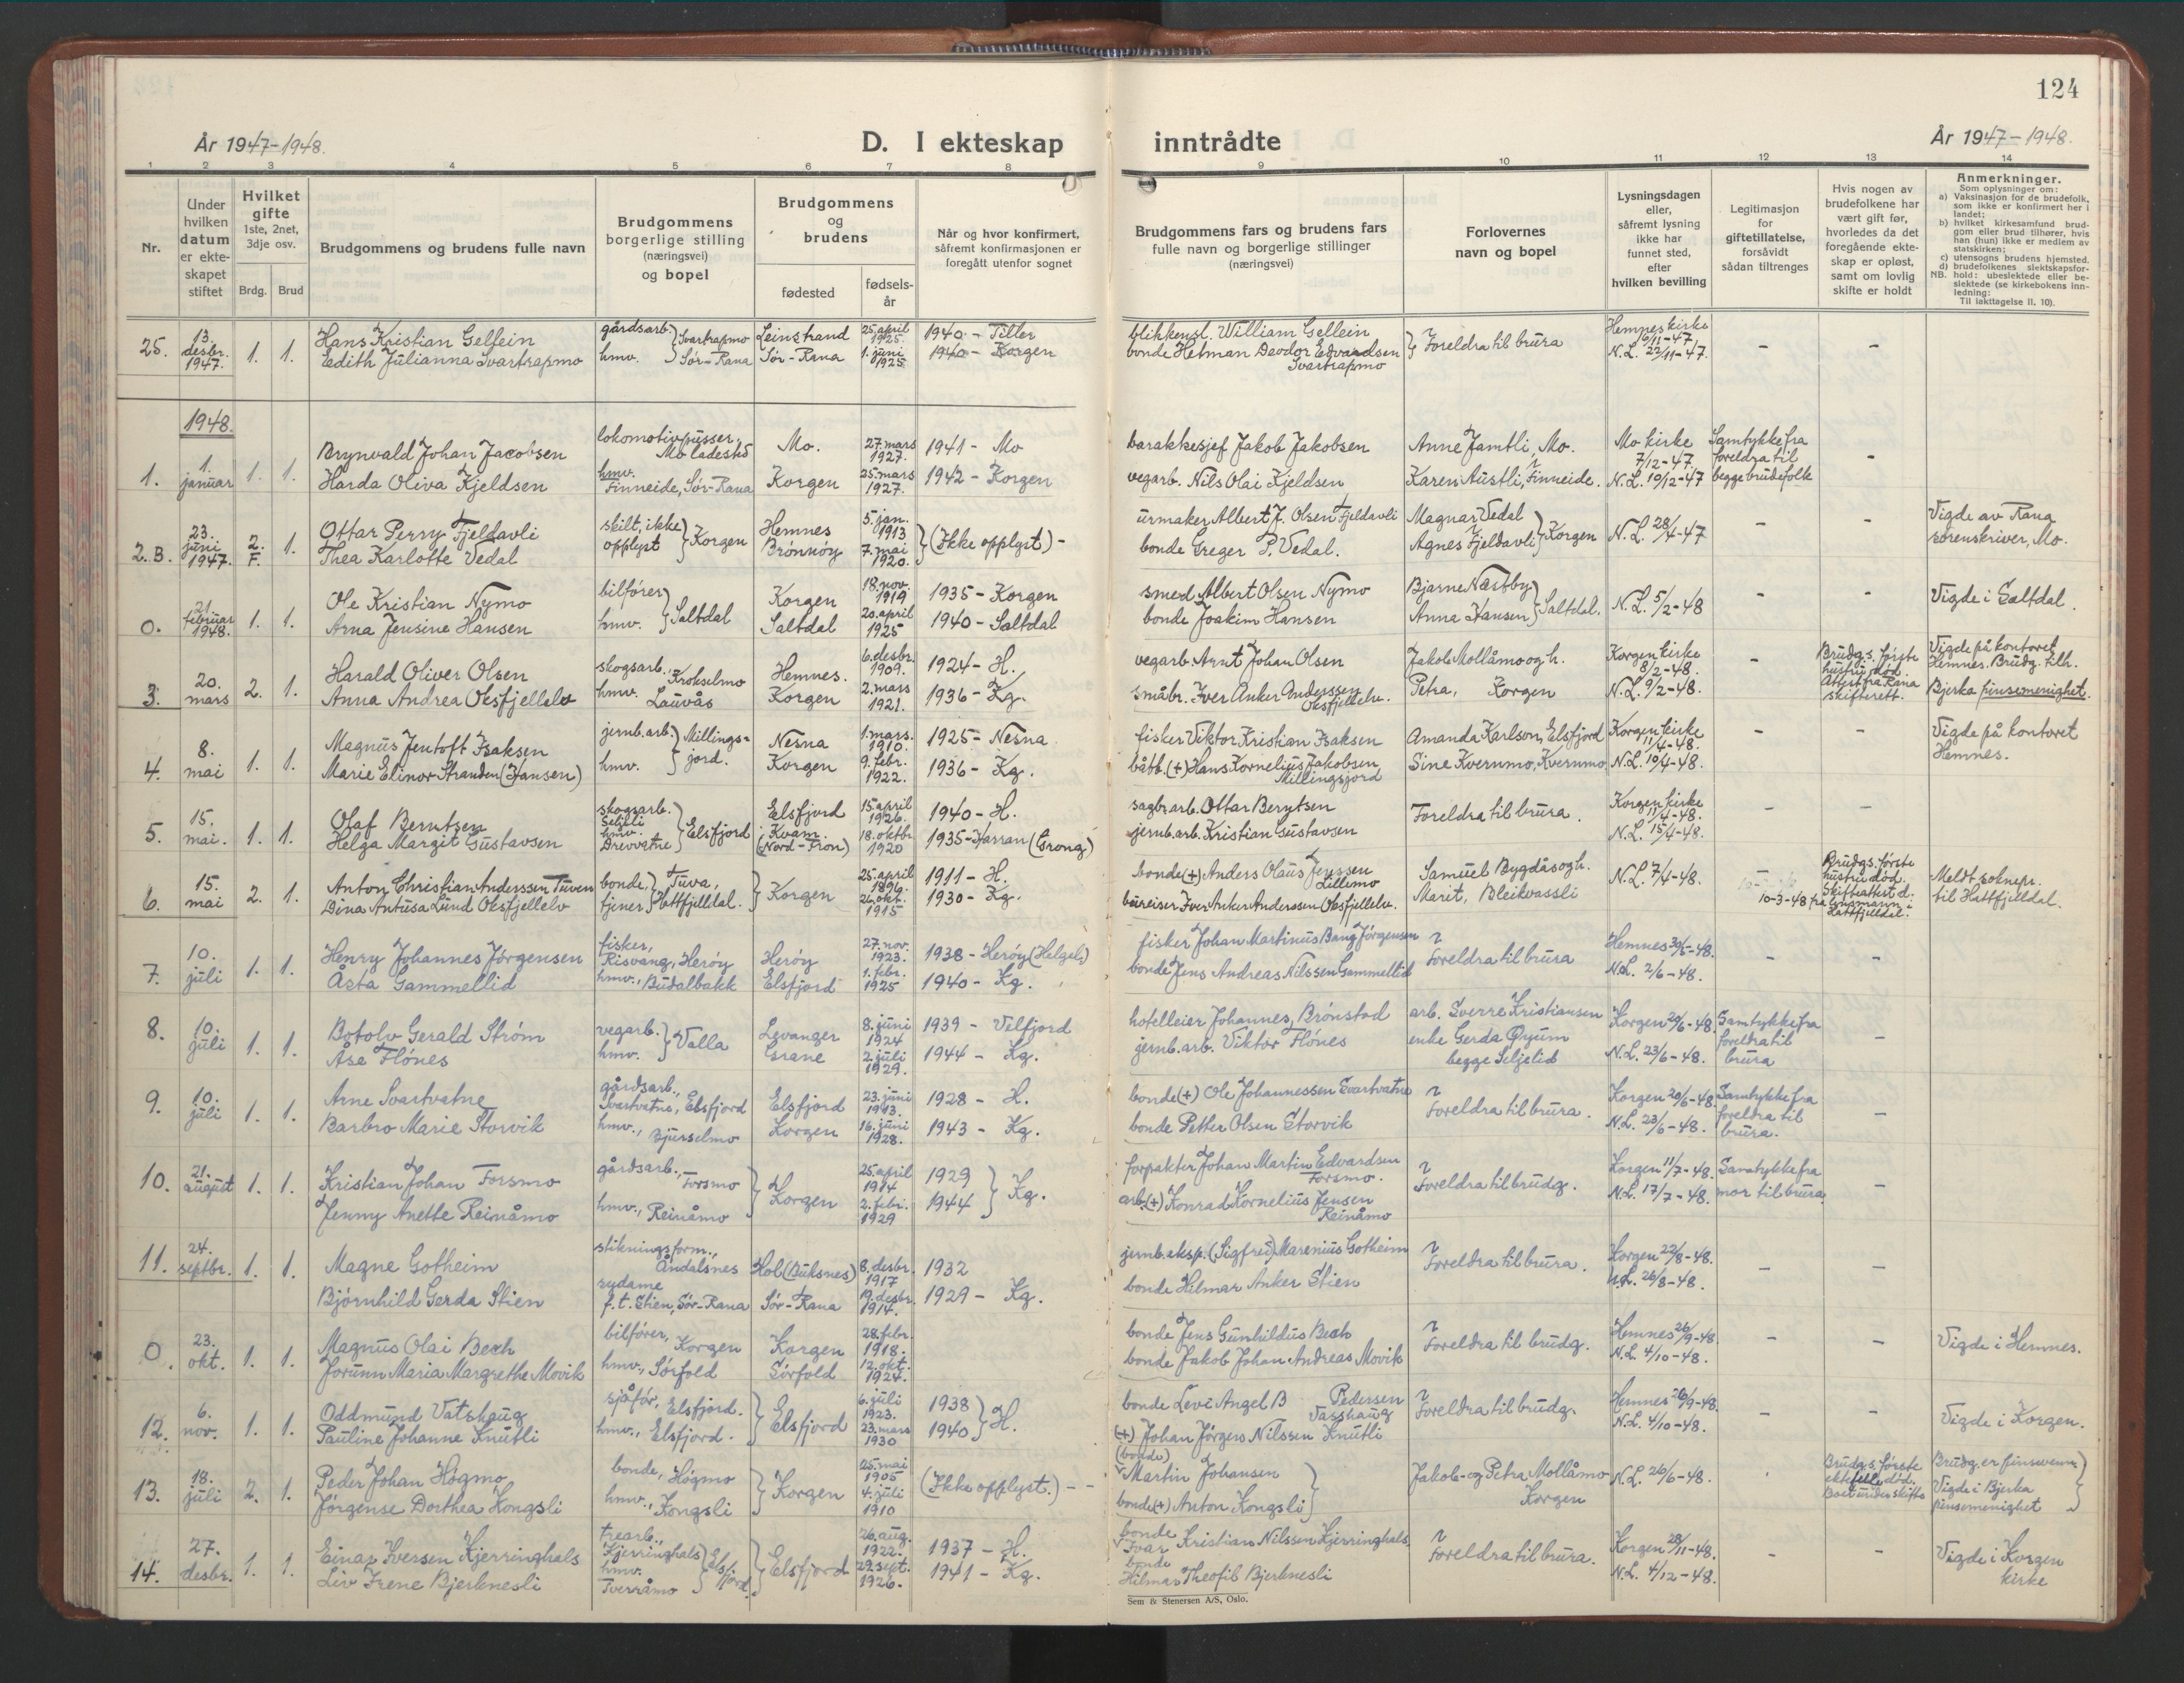 124
År 1947-1948.
D. I ekteskap inntrådte
År 1947-1948.
1 2 3 4 5 6 7 8 9 10 11 12 13 14
Nr.
Under hvilken datum er ekteskapet stiftet
Hvilket gifte 1ste, 2net, 3dje osv.
Brdg. Brud
Brudgommens og brudens fulle navn
Brudgommens borgerlige stilling (næringsvei) og bopel
Brudgommens og brudens
fødested
fødsels-år
Når og hvor konfirmert, såfremt konfirmasjonen er foregått utenfor sognet
Brudgommens fars og brudens fars fulle navn og borgerlige stillinger (næringsvei)
Forlovernes navn og bopel
Lysningsdagen eller, såfremt lysning ikke har funnet sted, efter hvilken bevilling
Legitimasjon for giftetillatelse, forsåvidt sådan tiltrenges
Hvis nogen av brudefolkene har vært gift før, hvorledes da det foregående ekteskap er opløst, samt om lovlig skifte er holdt
Anmerkninger.
Som oplysninger om:
a) Vaksinasjon for de brudefolk, som ikke er konfirmert her i landet;
b) hvilket kirkesamfund brudgom eller brud tilhører, hvis han (hun) ikke er medlem av statskirken;
c) utensogns brudens hjemsted.
d) brudefolkenes slektskapsforhold: ubeslektede eller beslektede (se kirkebokens innledning:
NB.
Til iakttagelse II, 10).
25. 13. desbr. 1947. 1. 1. Hans Kristian Gellein gårdsarb. Svartrapmo Leinstrand 25. april 1925. 1940 - Tiller blikkensl. William Gellein Foreldra til brura Hemnes kirke 16/11-47 - -
Edith Julianna Svartrapmo hmv. Sør-Rana Sør-Rana 1. juni 1925 1940 - Korgen bonde Hetman Deodor Edvardsen Svartrapmo N.L. 22/11-47.
1948.
1. 1. januar 1. 1. Brynvald Johan Jacobsen lokomotivpusser. Mo ladestø Mo. 27. mars 1927. 1941 - Mo barakkesjef Jakob Jakobsen Anne Jamtli, Mo. Mo kirke 7/12-47. Samtykke fra foreldra til begge brudefolk -
Harda Oliva Kjeldsen hmv. Finneide, Sør-Rana Korgen 25. mars 1927. 1942 - Korgen vegarb. Nils Olai Kjeldsen Karen Austli, Finneide. N.L. 10/12-47
2.B. 23. juni 1947. 2. F. 1. Ottar Perry Fjeldavli skilt, ikke opplyst Korgen Hemnes 5. jan. 1913 (Ikke opplyst) - urmaker Albert J. Olsen Fjeldavli Magnar Vedal Korgen N.L. 28/4-47 - - Vigde av Rana sorenskriver, Mo.
Thea Karlotte Vedal Brønnøy 7. mai 1920. bonde Greger P. Vedal. Agnes Fjeldavli
0. 21. februar 1948. 1. 1. Ole Kristian Nymo bilfører Saltdal Korgen 18. nov. 1919 1935 - Korgen smed Albert Olsen Nymo Bjarne Næstby Saltdal. N.L. 5/2-48 - - Vigde i Saltdal.
Arna Jensine Hansen hmv. Saltdal 20. april 1925 1940 - Saltdal bonde Joakim Hansen Anna Hansen
3. 20. mars 2. 1. Harald Oliver Olsen skogsarb. Krokselmo Hemnes. 6. desbr. 1909. 1924 - H. vegarb. Arnt Johan Olsen Jakob Mollåmo og h. Korgen kirke 8/2-48. - Brudgs. første hustru død. Attest fra Rana skifterett. Vigde på kontoret Hemnes. Brudg. tilh. Bjerka pinsemenighet.
Anna Andrea Oksfjellelv hmv. Lauvås Korgen 2. mars 1921. 1936 - Kg. småbr. Iver Anker Anderssen Oksfjellelv. Petra, Korgen N.L. 9/2-48.
4. 8. mai 1. 1. Magnus Jentoft Isaksen jernb.arb. Millingsjord. Nesna 1. mars. 1910. 1925 - Nesna fisker Viktor Kristian Isaksen Amanda Karlson, Elsfjord Korgen kirke 11/4-48. - - Vigde på kontoret Hemnes.
Marie Elinor Stranden (Hansen) hmv. Korgen 9. febr. 1922. 1936 - Kg. båtb. (+) Hans Kornelius Jakobsen, Millingsjord Sine Kvernmo, Kvernmo N.L. 10/4-48.
5. 15. mai. 1. 1. Olaf Berntsen skogsarb. Setjlli Elsfjord Elsfjord 15. april 1926. 1940 - H. sagbr.arb. Ottar Berntsen Foreldra til brura. Korgen kirke 11/4-48. - -
Helga Margit Gustavsen hmv. Drevvatne Kvam. (Nord-Fron) 18. oktbr. 1920 1935 - Harran (Grong) jernb.arb. Kristian Gustavsen N.L. 15/4-48.
6. 15. mai 2. 1. Anton Christian Anderssen Tuven bonde, Tuva, Korgen 25. april 1896. 1911 - H. bonde (+) Anders Olaus Jenssen Lillemo Samuel Bygdås og h. N.L. 7/4-48. - Brudgs. første hustru død. Skifteattest d. 10-3-48 fra lensmann i Hattfjelldal. Meldt soknepr. til Hattfjelldal.
Dina Antusa Lund Oksfjellelv tjener Hattfjelldal. 26. okt. 1915 1930 - Kg. bureiser Iver Anker Anderssen Oksfjellelv. Marit, Bleikvassli
7. 10. juli 1. 1. Henry Johannes Jørgensen fisker, Risvang, Herøy Herøy 27. nov. 1923. 1938 - Herøy (Helgel.) fisker Johan Martinus Bang Jørgensen Foreldra til brura Hemnes 30/5-48. - -
Åsta Gammellid hmv., Budalbakk Elsfjord 1. febr. 1925 1940 - Kg. bonde Jens Andreas Nilssen Gammellid N.L. 2/6-48.
8. 10. juli 1. 1. Botolv Gerald Strøm vegarb. Valla Levanger 8. juni 1924 1939 - Velfjord hotelleier Johannes Brønstad arb. Sverre Kristiansen Korgen 20/6-48. Samtykke fra foreldra til brura -
Åse Flønes hmv. Grane 2. juli 1929. 1944 - Kg. jernb.arb. Viktor Flønes enke Gerda Øyum begge Seljelid N.L. 23/6-48.
9. 10. juli 1. 1. Arne Svartvatne gårdsarb., Svartvatne, Elsfjord Elsfjord 23. juni 1913. 1928 - H. bonde (+) Ole Johannessen Svartvatne Foreldra til brura. Korgen 20/6-48 Samtykke fra foreldra til brura. -
Barbro Marie Storvik hmv., Bjurselmo Korgen 16. juni 1928. 1943 - Kg. bonde Petter Olsen Storvik N.L. 23/6-48.
10. 21. august 1. 1. Kristian Johan Forsmo gårdsarb., Forsmo Korgen 25. april 1914 1929 Kg. forpakter Johan Martin Edvardsen Forsmo. Foreldra til brudg. Korgen 11/7-48. Samtykke fra mor til brura -
Jenny Anette Reinåmo hmv., Reinåmo 2. febr. 1929 1944 arb. (+) Konrad Kornelius Jensen Reinåmo N.L. 17/7-48.
11. 24. septbr. 1. 1. Magne Gotheim stikningsform., Åndalsnes Hol (Buksnes) 8. desbr. 1917 1932 jernb.eksp. (Sigfred) Marenius Gotheim Foreldra til brura. Korgen 22/8-48. - -
Bjørnhild Gerda Stien sydame f.t. Stien, Sør-Rana Sør-Rana 19. desbr. 1914. 1929 - Kg. bonde Hilmar Anker Stien N.L. 26/8-48.
0. 23. okt. 1. 1. Magnus Olai Bech bilfører, Korgen Korgen 28. febr. 1918. bonde Jens Gunhildus Bech Foreldra til brudg. Hemnes 26/9-48 - - Vigde i Hemnes.
Jorunn Maria Margrethe Movik hmv., Sørfold Sørfold 12. okt. 1924. bonde Jakob Johan Andreas Movik N.L. 4/10-48.
12. 6. nov. 1. 1. Oddmund Vatshaug sjåfør, Elsfjord. Elsfjord 6. juli 1923. 1938 H. bonde Levi Angel B Pedersen Vasshaug Foreldra til brudg. Hemnes 26/9-48. - - Vigde i Korgen.
Pauline Johanne Knutli hmv., Elsfjord. 23. mars 1930 1940 (+) Johan Jørgen Nilssen Knutli (bonde) N.L. 4/10-48.
13. 18. juli 2. 1. Peder Johan Høgmo bonde, Høgmo Korgen 25. mai 1905 (Ikke opplyst.) - - Martin Johansen Jakob- og Petra Mollåmo Korgen N.L. 26/6-48. Brudgs. første ektefelle død. Boet under skifte Brudg. er pinsevenn Vigde i Bjerka pinsemenighet
Jørgense Dorthea Kongsli hmv., Kongsli 4. juli 1910 bonde (+) Anton Kongsli
14. 27. desbr. 1. 1. Einar Iversen Kjerringhals trearb., Kjerringhals Elsfjord. Elsfjord 26. aug. 1922. 1937 - H. bonde Ivar Kristian Nilssen Kjerringhals Foreldra til brura. Korgen 28/11-48. - - Vigde i Korgen kirke
Liv Irene Bjerknesli hmv. Tverråmo 22. sept. 1926. 1941 - Kg. bonde Hilmar Theofil Bjerknesli N.L. 4/12-48.
Sem & Stenersen A/S, Oslo.